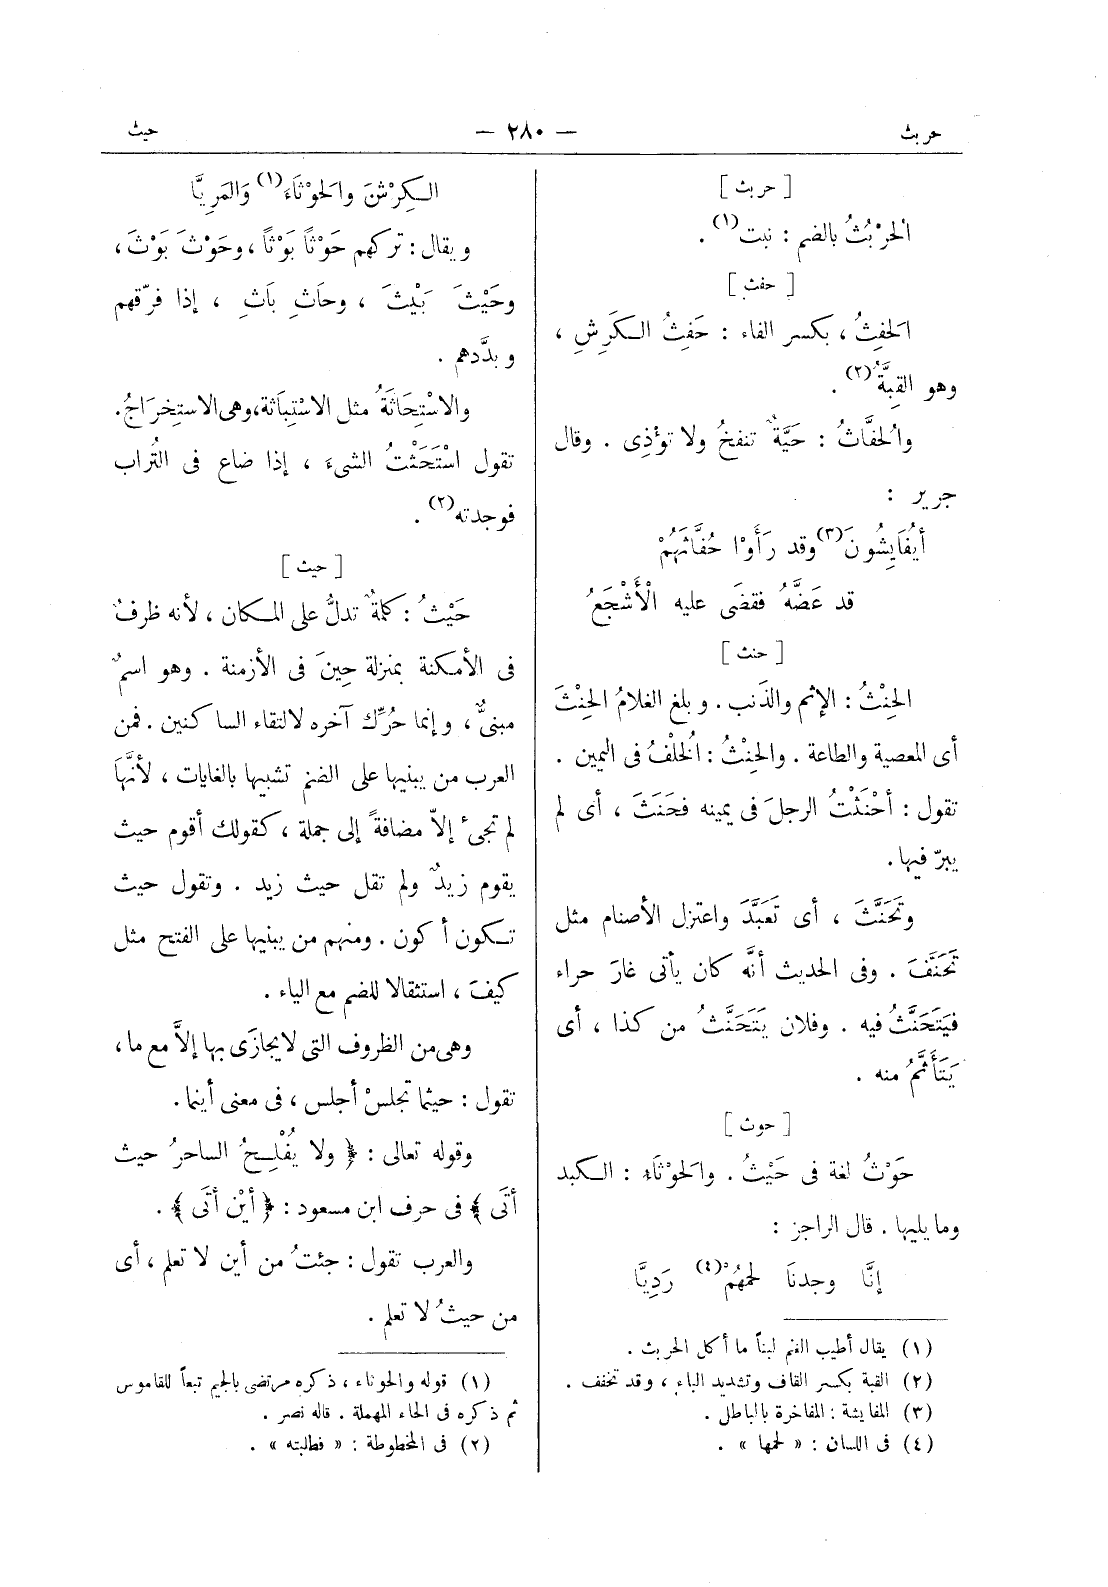 حربث — ٢٨٠ — حيث
[ حربث ]
الحُرْبُثُ بالضم : نبت(١) .
[ حفث ]
الحَفِثُ ، بكسر الفاء : حَفِثُ الكَرِشِ ،
وهو القِبَّةُ(٢) .
والحُفَّاثُ : حَيَّةٌ تنفخُ ولا تؤذِى . وقال
جرير :
أيُفَايِشُونَ(٣) وقد رَأَوْا حُفَّاثَهُمْ
قد عَضَّهُ فقضَى عليه الْأَشْجَعُ
[ حنث ]
الحِنْثُ : الإثم والذَنب . وبلغ الغلامُ الحِنْثَ
أى المعصية والطاعة . والحِنْثُ : الخُلْفُ فى اليمين .
تقول : أحْنَثْتُ الرجلَ فى يمينه فحَنَثَ ، أى لم
يبرّ فيها .
وتَحَنَّثَ ، أى تَعَبَّدَ واعتزل الأصنام مثل
تَحَنَّفَ . وفى الحديث أنَّه كان يأتى غارَ حراء
فيَتَحَنَّثُ فيه . وفلان يَتَحَنَّثُ من كذا ، أى
يَتَأَثَّمُ منه .
[ حوث ]
حَوْثُ لغة فى حَيْثُ . والحَوْثَاءِ : الكبد
وما يليها . قال الراجز :
إنَّا وجدنَا لحمَهُمْ(٤) رَدِيَّا
(١) يقال أطيب الغنم لبناً ما أكل الحربث .
(٢) القبة بكسر القاف وتشديد الباء ، وقد تخفف .
(٣) المفايشة : المفاخرة بالباطل .
(٤) فى اللسان : « لحمها » .
الكِرْشَ والحَوْثَاءَ(١) وَالمَرِيَّا
ويقال : تركهم حَوْثاً بَوْثاً ، وحَوْثَ بَوْثَ ،
وحَيْثَ بَيْثَ ، وحَاثِ بَاثِ ، إذا فرّقهم
وبدَّدهم .
والاسْتِحَاثَةُ مثل الاسْتِبَاثة، وهى الاستِخرَاجُ .
تقول اسْتَحَثْتُ الشىءَ ، إذا ضاع فى التُراب
فوجدته(٢) .
[ حيث ]
حَيْثُ : كلمةٌ تدلُّ على المكان ، لأنه ظرفٌ
فى الأمكنة بمنزلة حِينَ فى الأزمنة . وهو اسمٌ
مبنىٌّ ، وإنما حُرِّك آخره لالتقاء الساكنين . فمن
العرب من يبنيها على الضم تشبيها بالغايات ، لأنَّهَا
لم تجىْ إلاّ مضافةً إلى جملة ، كقولك أقوم حيث
يقوم زيدٌ ولم تقل حيث زيد . وتقول حيث
تكون أكون . ومنهم من يبنيها على الفتح مثل
كيفَ ، استثقالا للضم مع الياء .
وهى من الظروف التى لايجازَى بها إلاَّ مع ما ،
تقول : حيثما تجلسْ أجلس ، فى معنى أينما .
وقوله تعالى : ﴿ ولا يُفْلِحُ الساحرُ حيث
أتَى ﴾ فى حرف ابن مسعود : ﴿ أيْن أتَى ﴾ .
والعرب تقول : جئتُ من أين لا تعلم ، أى
من حيثُ لا تعلم .
(١) قوله والحوثاء ، ذكره مرتضى بالجيم تبعاً للقاموس
ثم ذكره فى الحاء المهملة . قاله نصر .
(٢) فى المخطوطة : « فطلبته » .